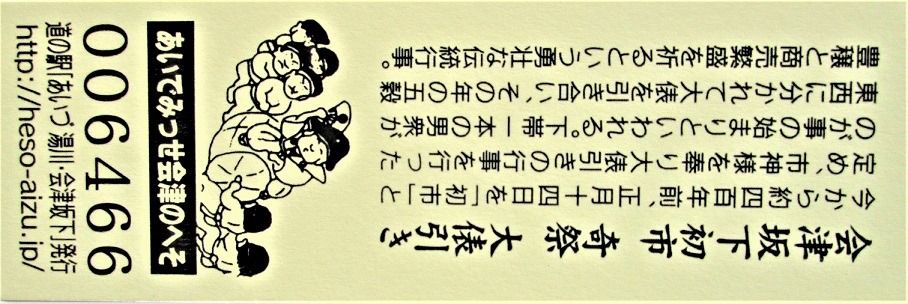 会津坂下初市 奇祭 大俵引き
今から約四百年前、正月十四日を「初市」と
定め、市神様を奉り大俵引きの行事を行った
のが事の始まりといわれる。下帯一本の男衆が
東西に分かれて大俵を引き合い、その年の五穀
豊穣と商売繁盛を祈るという勇壮な伝統行事。
あいでみっせ会津のへそ
006466
道の駅「あいづ 湯川・会津坂下」発行
http://heso-aizu.jp/